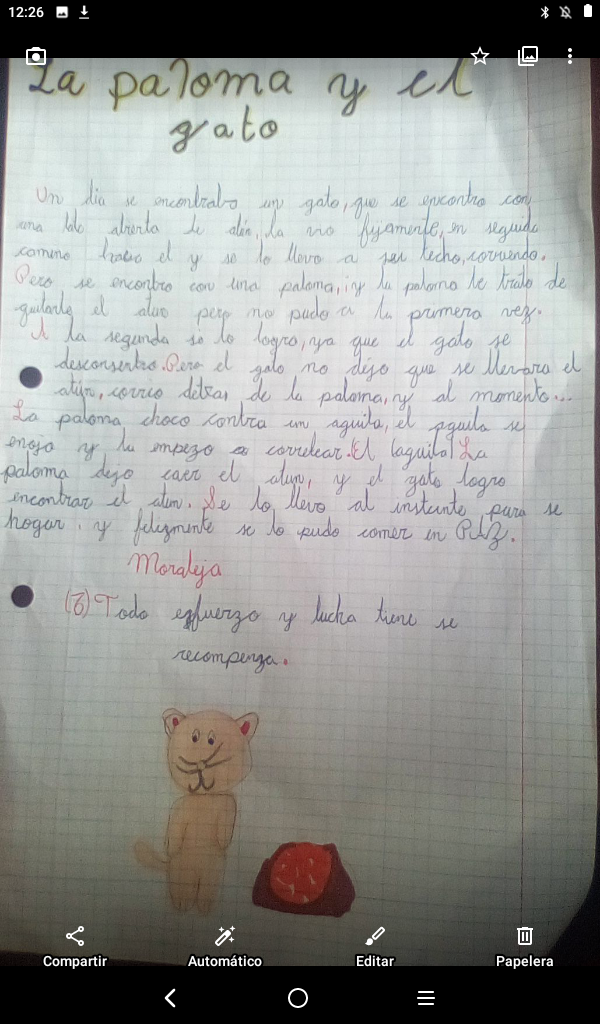 12:26
La paloma y el
gato
Un dia se encontrabo un gato, que se encontro con
una lata abierta de atún, la vio fijamente, en seguida
camino hacia el y se lo llevo a su techo, corriendo.
Pero se encontro con una paloma, y la paloma le trato de
quitarle el atun pero no pudo a la primera vez.
A la segunda si lo logro, ya que el gato se
desconsentro. Pero el gato no dijo que se llevara el
atún, corrio detras de la paloma, y al momento...
La paloma choco contra un aguila, el aguila se
enojo y la empezo a corretear. El laguila La
paloma dejo caer el atun, y el gato logro
encontrar el atun. Se lo llevo al instante para su
hogar, y felizmente se lo pudo comer en PAZ.
Moraleja
Todo esfuerzo y lucha tiene su
recompenza.
Compartir Automático Editar Papelera